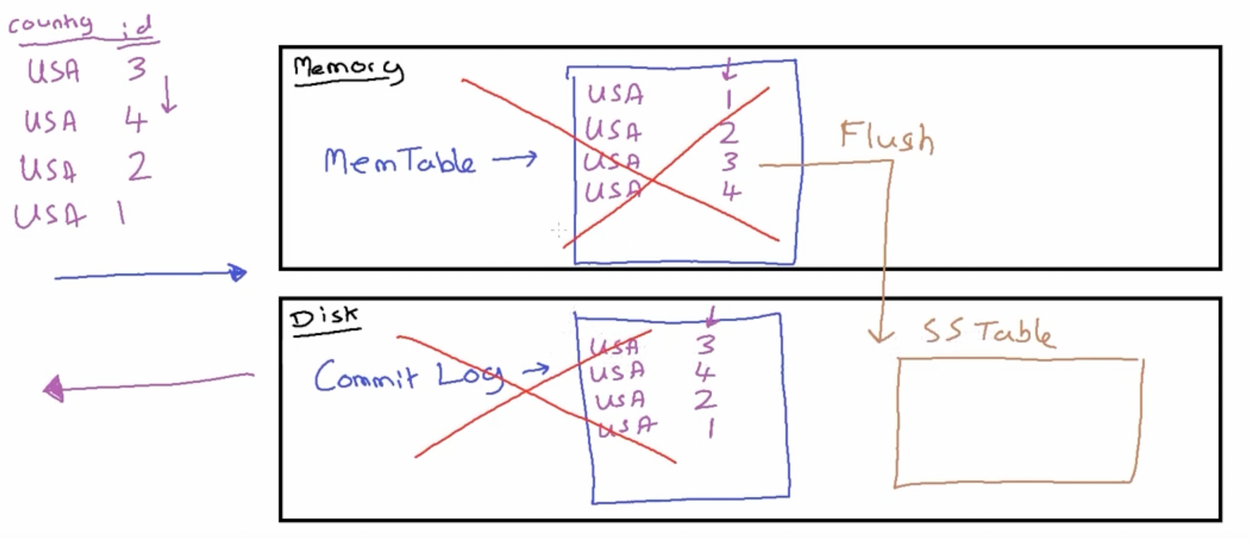 country id
USA 3
USA 4
USA 2
USA 1
Memory
MemTable
USA 1
USA 2
USA 3
USA 4
Flush
Disk
Commit Log
USA 3
USA 4
USA 2
USA 1
SS Table